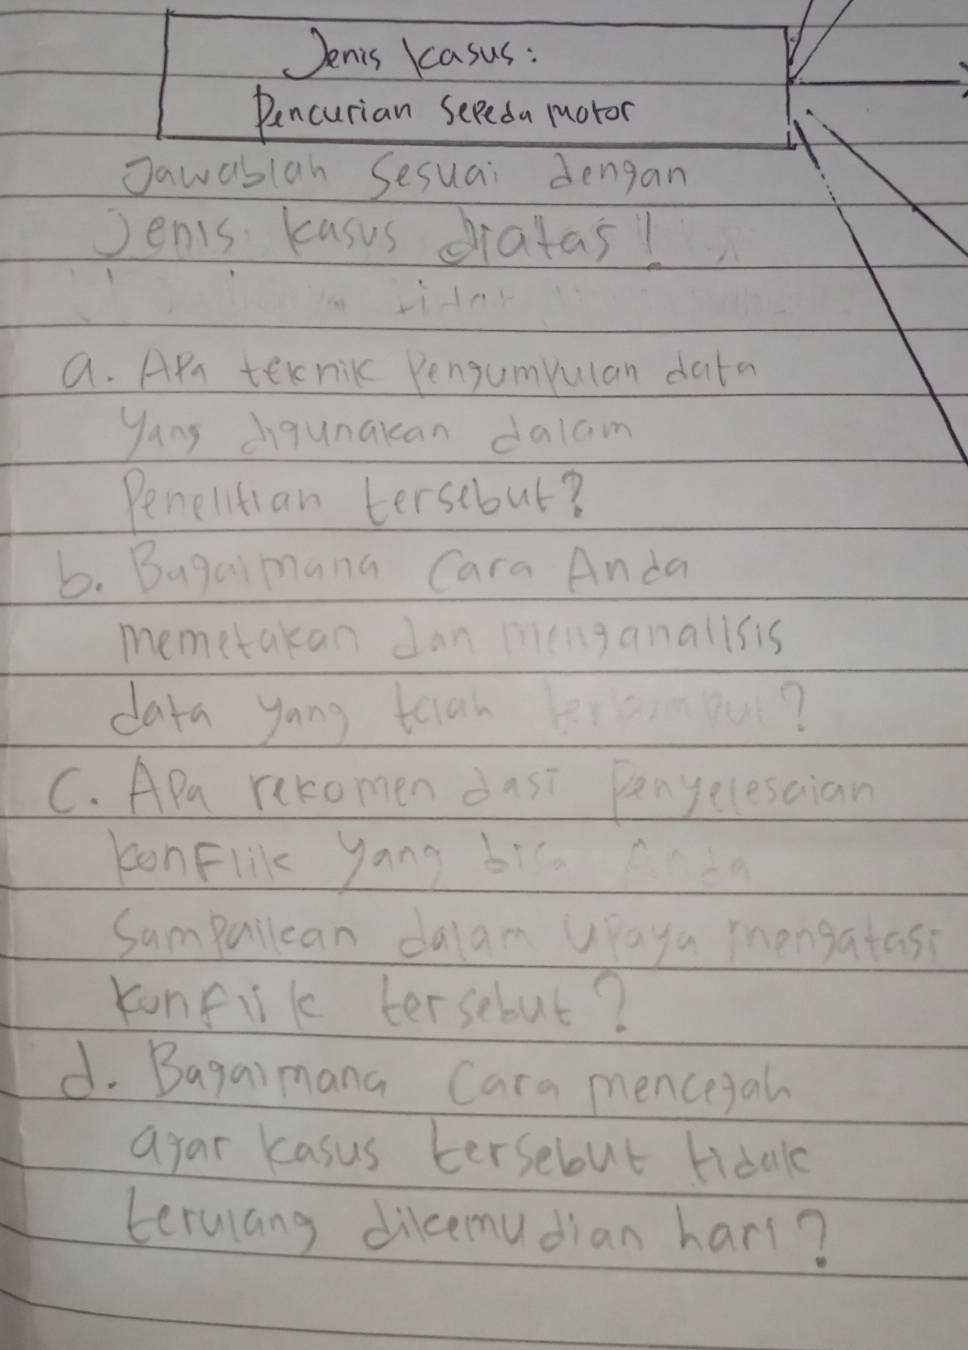 Jenis kasus:
Pencurian sepeda motor
Jawablah sesuai dengan
Jenis kasus diatas!
a. Apa teknik pengumpulan data
yang digunakan dalam
Penelitian tersebut?
b. Bagaimana cara Anda
memetakan dan menganalisis
data yang telah terkumpul?
c. Apa rekomendasi penyelesaian
konflik yang bisa Anda
sampaikan dalam upaya mengatasi
konflik tersebut?
d. Bagaimana cara mencegah
agar kasus tersebut tidak
terulang dikemudian hari?